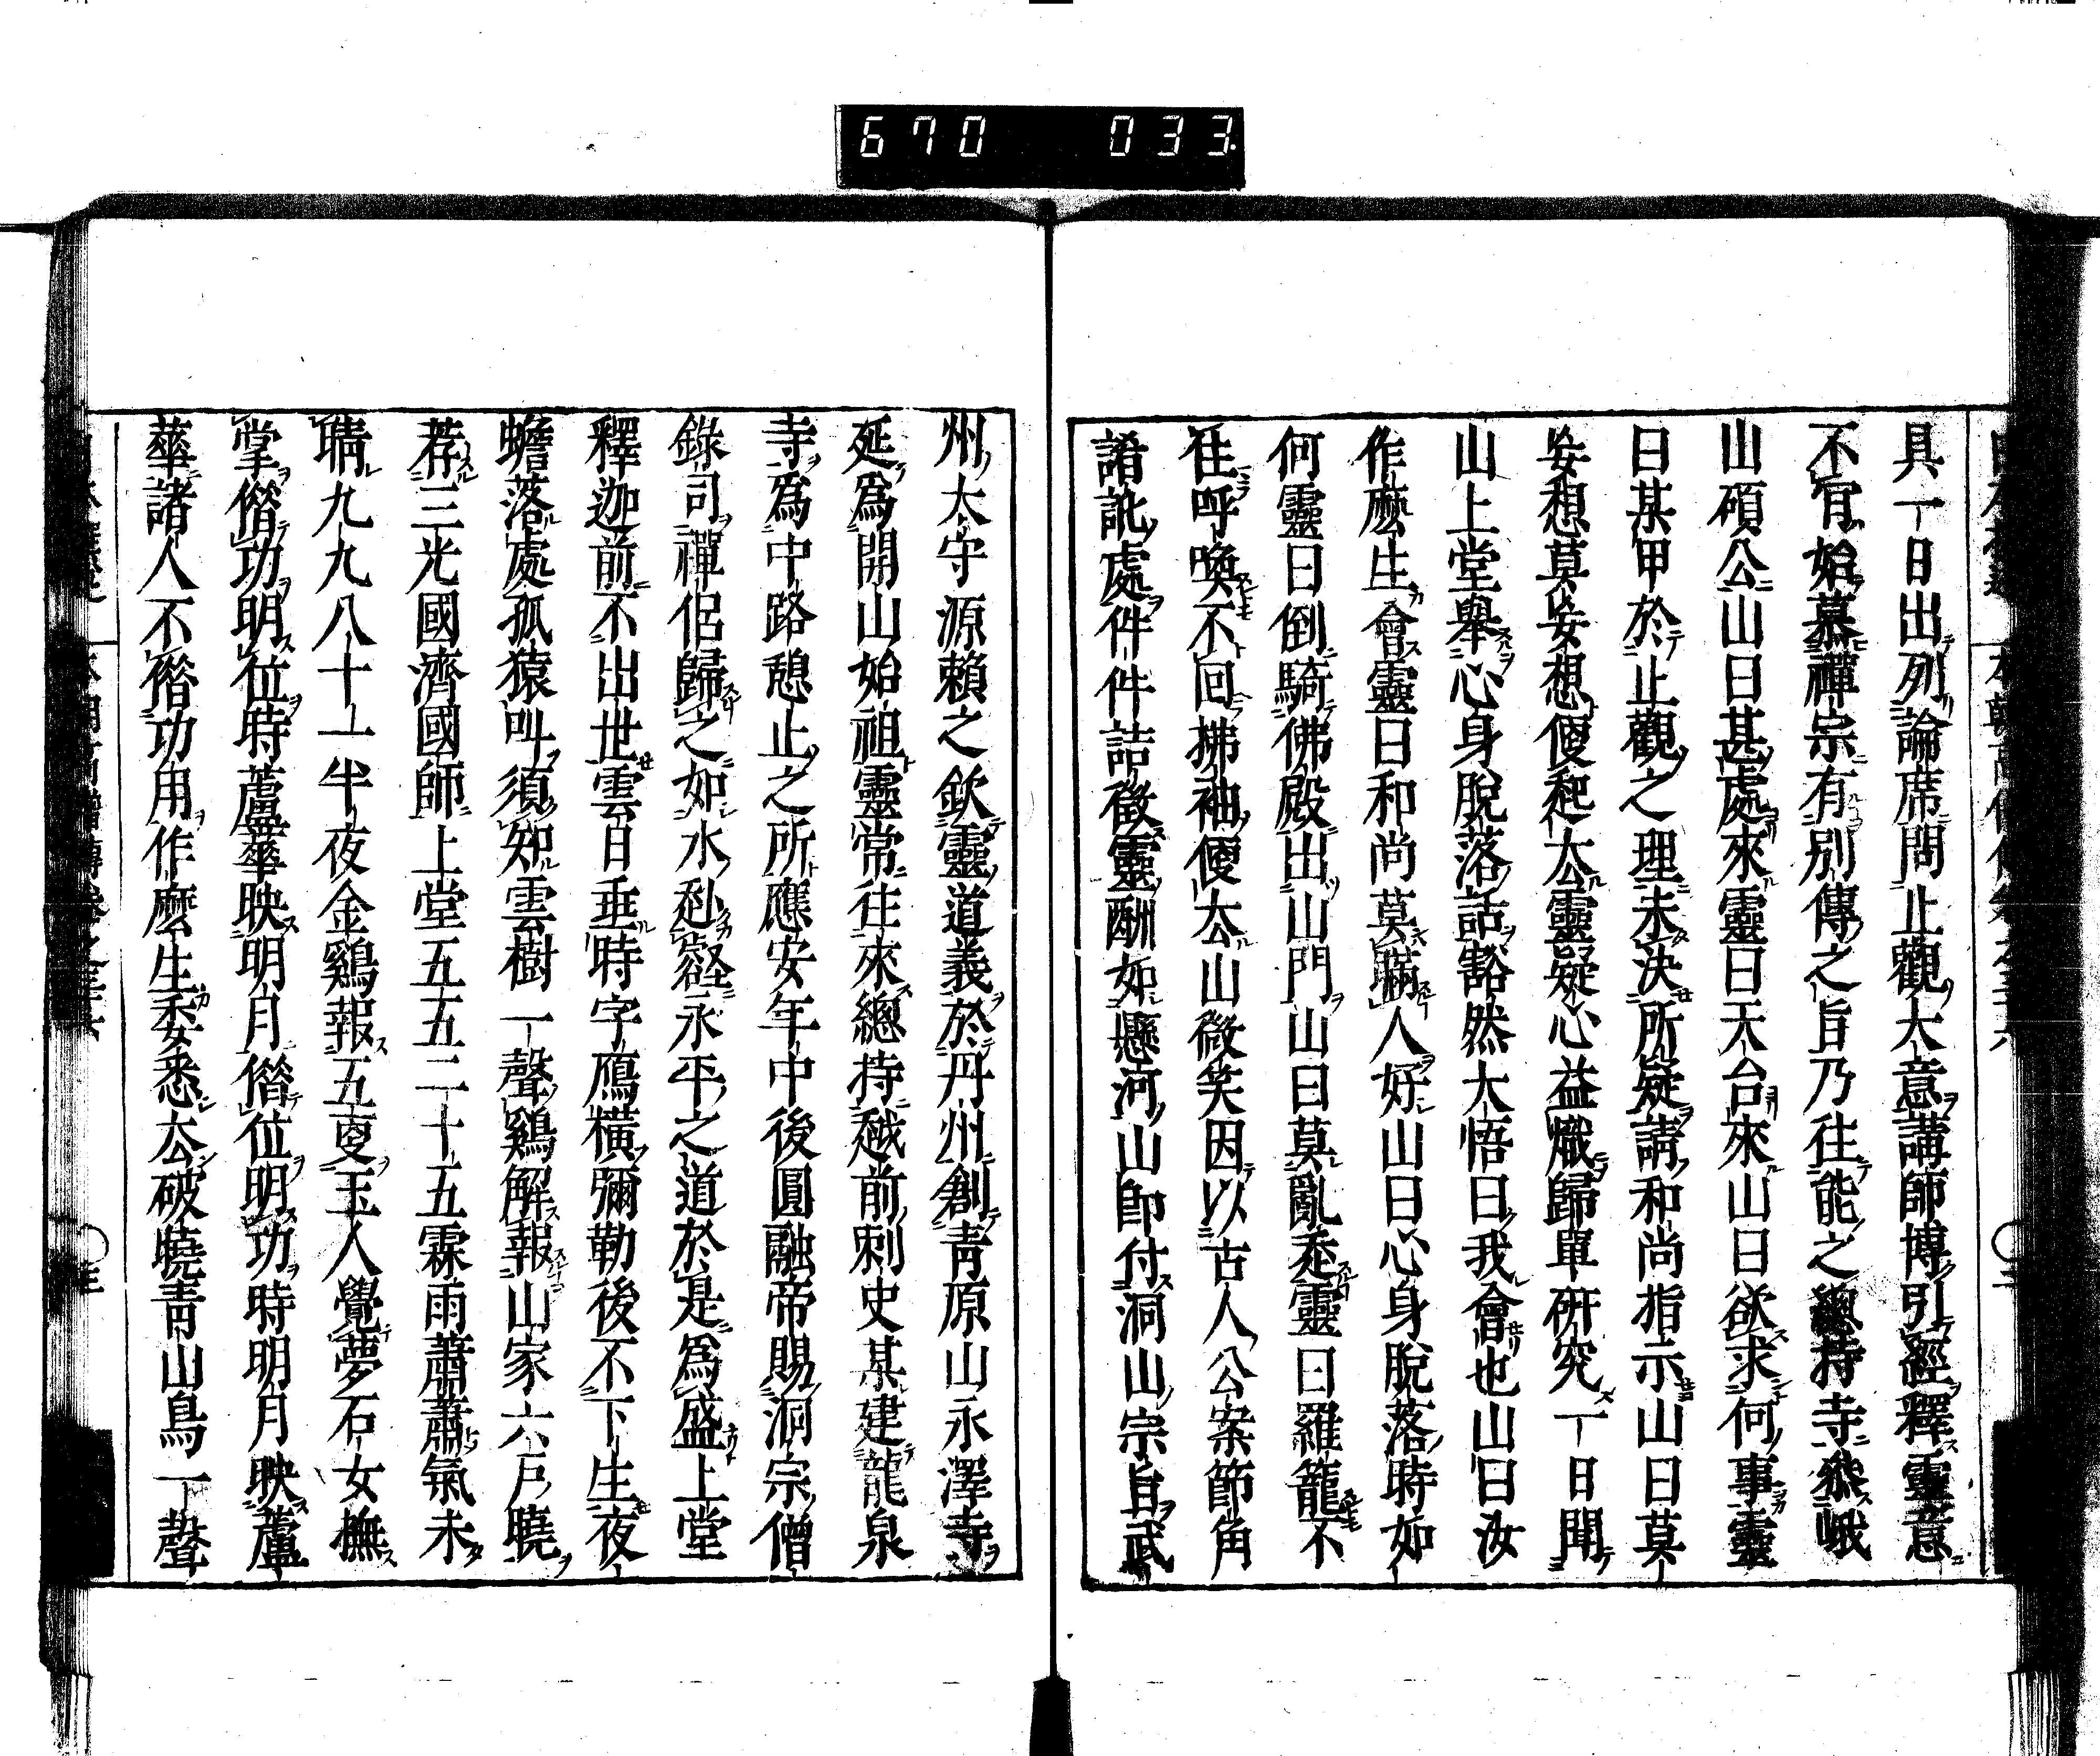 670 033
具一日出列論席問止觀大意講師博引經釋靈意
不肯始慕禪宗有別傳之旨乃往能之總持寺參峨
山碩公山曰甚處來靈曰天台來山曰欲求何事靈
曰某甲於止觀之理未決所疑請和尚指示山曰莫
妄想莫妄想便起去靈疑心益熾歸單研究一日聞
山上堂舉心身脫落話豁然大悟曰我會也山曰汝
作麽生會靈曰和尚莫瞞人好山曰心身脫落時如
何靈曰倒騎佛殿出山門山曰莫亂走靈曰羅籠不
住呼喚不回拂袖便去山微笑因以古人公案節角
誵訛處件件詰徵靈酬如懸河山即付洞山宗旨武
州太守源賴之欽靈道義於丹州創青原山永澤寺
延爲開山始祖靈常往來總持越前刺史某建龍泉
寺爲中路憩止之所應安年中後圓融帝賜洞宗僧
錄司禪侶歸之如水赴壑永平之道於是爲盛上堂
釋迦前不出世雲日垂時字鴈橫彌勒後不下生夜
蟾落處孤猿叫須知雲樹一聲鷄解報山家六戶曉
荐三光國濟國師上堂五五二十五霖雨蕭蕭氣未
晴九九八十一半夜金鷄報五更玉人覺夢石女撫
掌偺功明位時蘆華映明月偺位明功時明月映蘆
華諸人不偺功用作麽生委悉去破曉青山鳥一聲